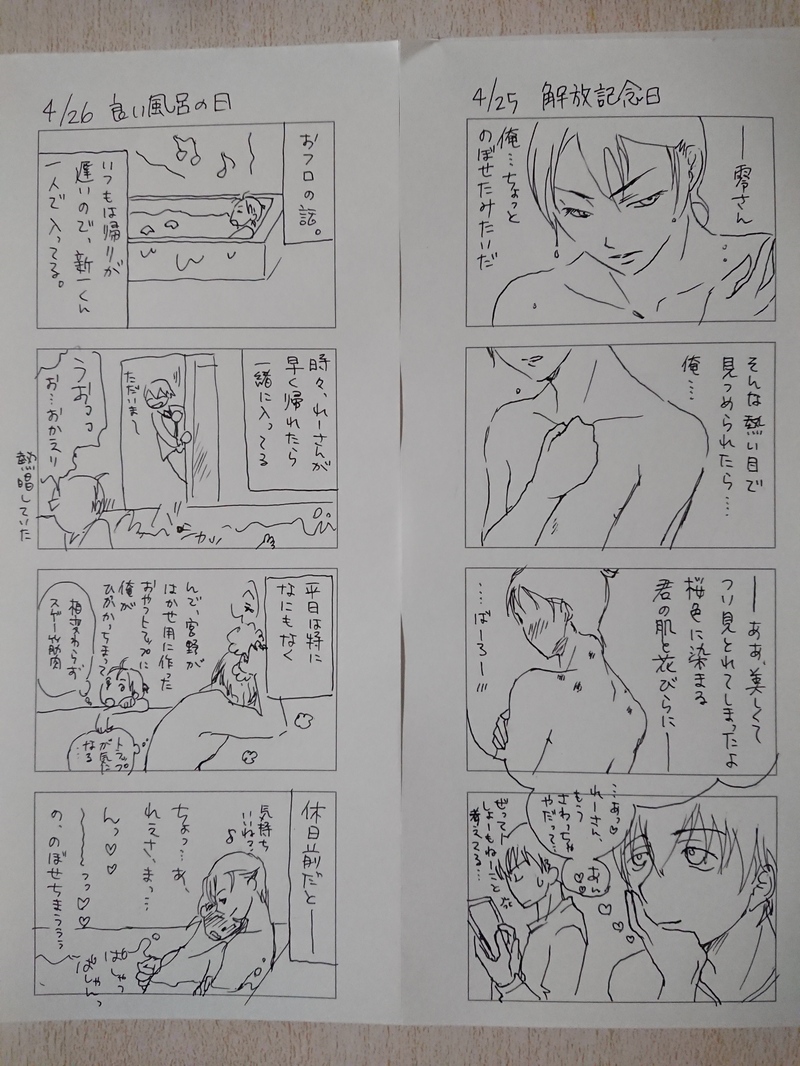 4/25 解放記念日
――零さん
俺…ちょっと
のぼせたみたいだ
そんな熱い目で
見つめられたら……
俺……
――ああ、美しくて
つい見とれてしまったよ
桜色に染まる
君の肌と花びらに――
……ばーろー…
…あっ♡
れーさん、
もう
さわっちゃ
やだって…
あん
♡♡
ぜってー
しょーもねーこと
考えてる…
な
4/26 良い風呂の日
おフロの話。
いつもは帰りが
遅いので、新一くん
一人で入ってる。
時々、れーさんが
早く帰れたら
一緒に入ってる
ただいま〜
うおっっ
お…おかえり
熱唱していた
平日は特に
なにもなく
へぇ〜
んで、宮野が
はかせ用に作った
おやつトラップに
俺が
ひっかかっちまって
相変わらず
スゲー筋肉
トラップ
が気に
なる…
休日前だと――
気持ち
いいね?
ちょっ…あ、
れえさ、まっ…
んっ♡♡
〜〜〜っっ♡♡
の、のぼせちまうぅぅ
ぱしゃっ
ぱしゃんっ